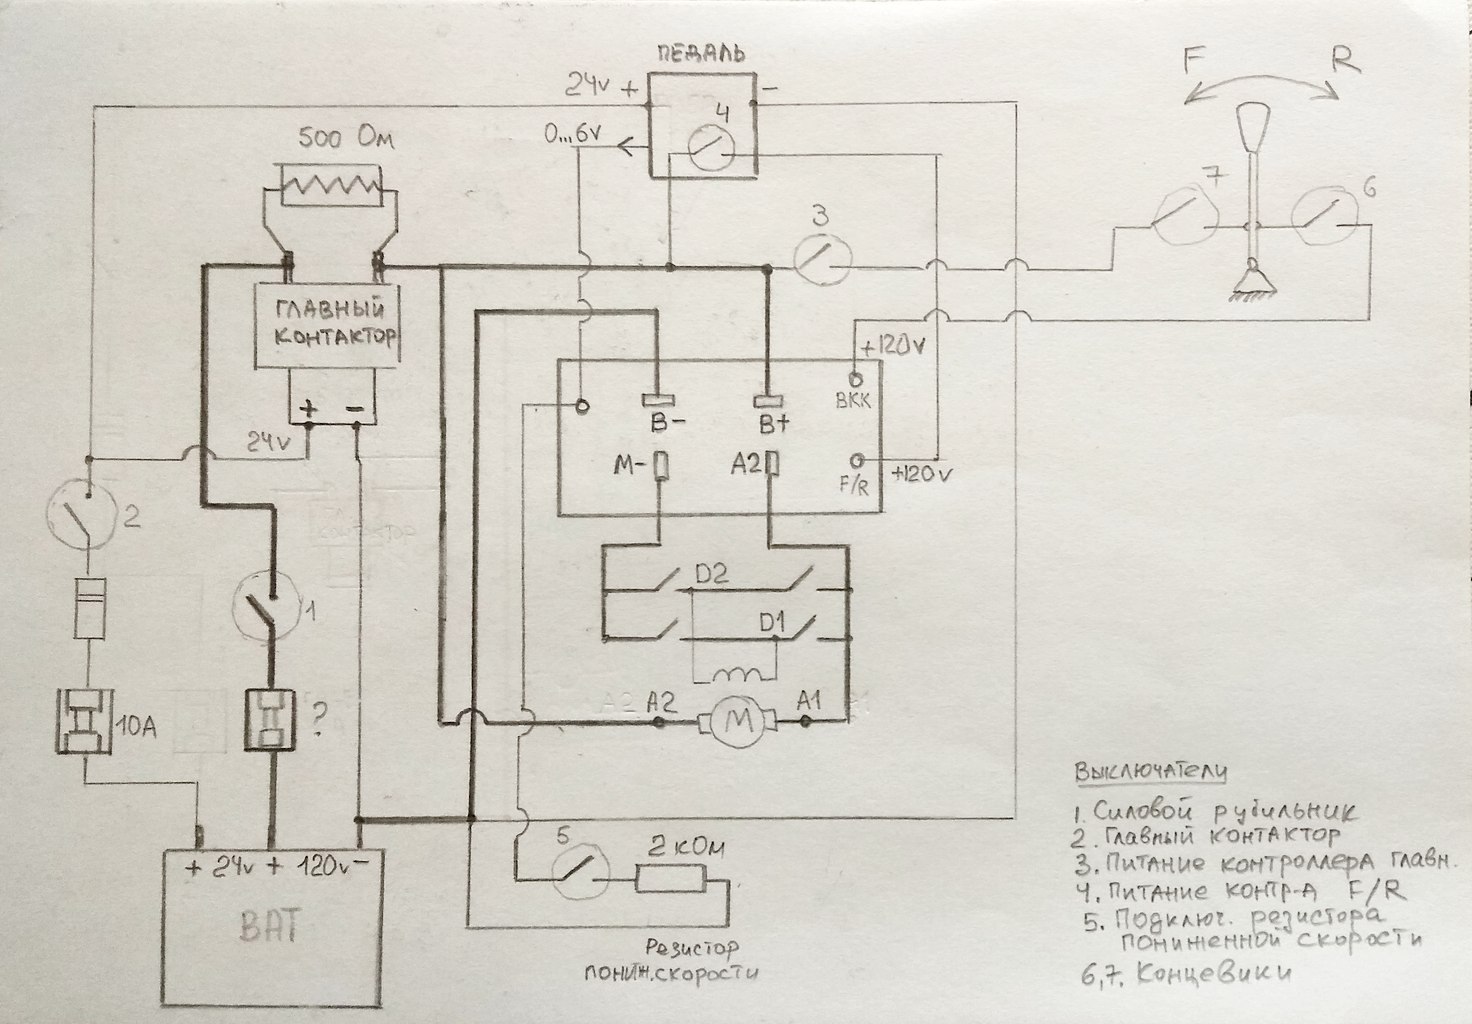 ПЕДАЛЬ
24v + -
4
0...6v
500 Ом
F R
7
6
3
ГЛАВНЫЙ
КОНТАКТОР
+ -
24v
+120v
ВКК
B- B+
M- A2
F/R
+120v
2
1
D2
D1
10А
?
A2 A1
M
5
2 кОм
+ 24v + 120v -
BAT
Резистор
пониж.скорости
Выключатели
1. Силовой рубильник
2. Главный контактор
3. Питание контроллера главн.
4. Питание контр-а F/R
5. Подключ. резистора
пониженной скорости
6,7. Концевики